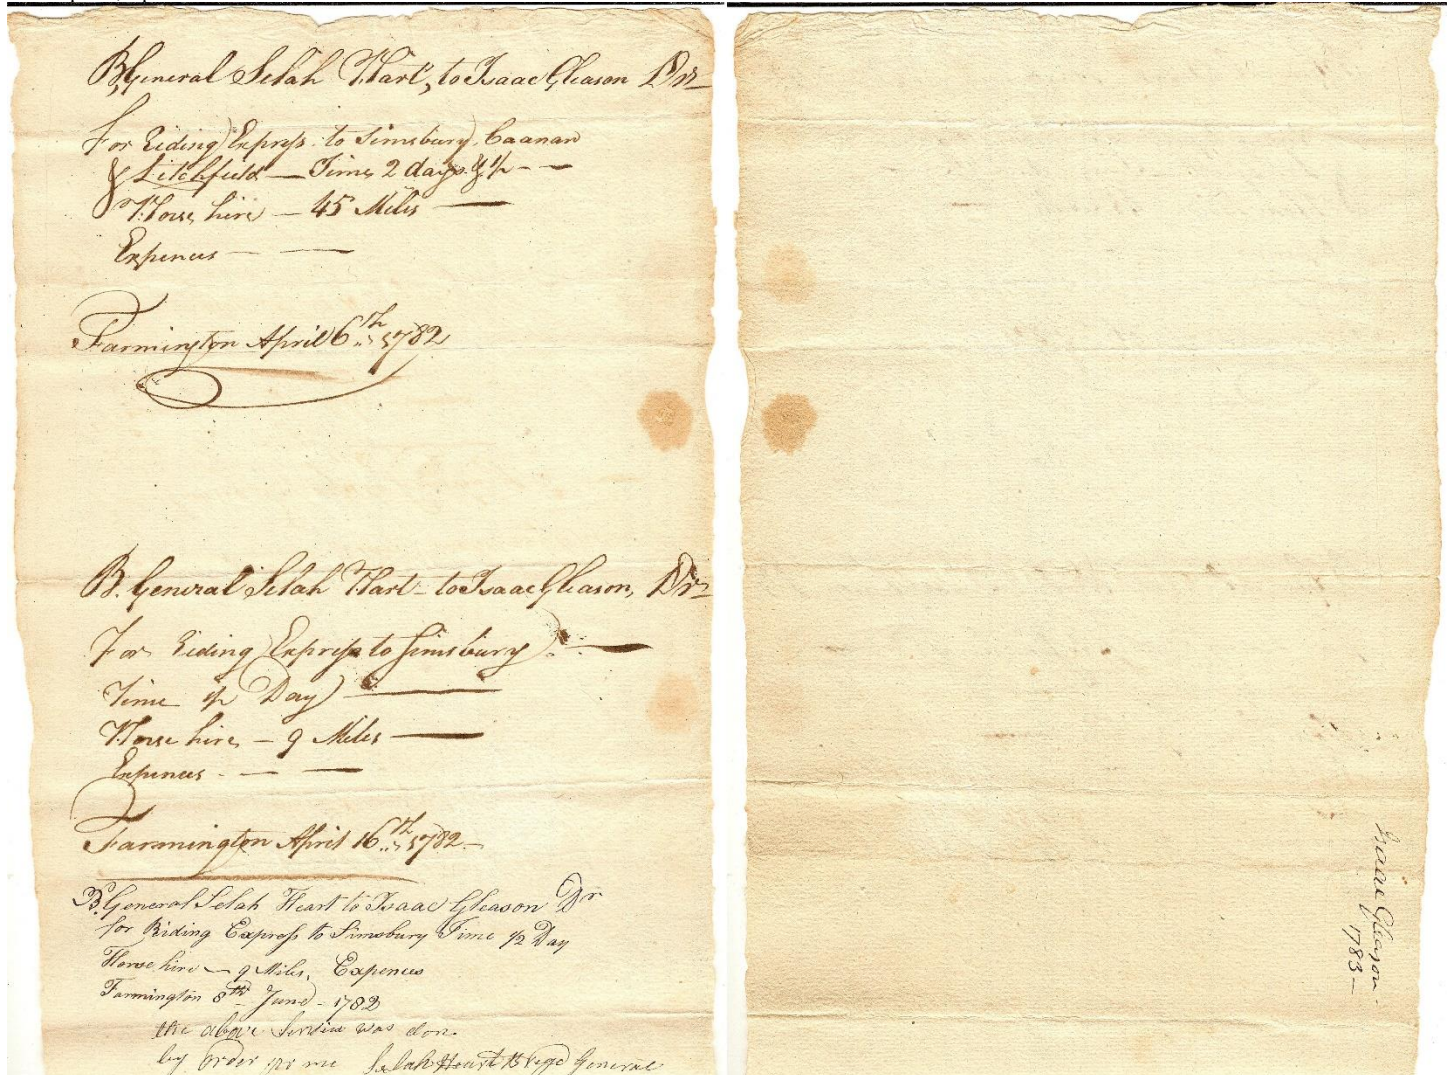 B,General Selah Hart, to Isaac Gleason Dr
For Riding Express to Simsbury, Caanan
& Litchfield — Time 2 days & 1/2 - —
Horse hire — 45 Miles —
Expences — —
Farmington April 6th 1782
B. General Selah Hart - to Isaac Gleason, Dr
For Riding Express to Simsbury . —
Time 1/2 Day —
Horse hire — 9 Miles —
Expences - — —
Farmington April 16th 1782 —
B. General Selah Heart to Isaac Gleason Dr
for Riding Express to Simsbury Time 1/2 Day
Horse hire — 9 Miles, Expences
Farmington 8th June - 1782
the above Service was don
by order pr me Selah Heart Brigd General
Isaac Gleason
1783 —